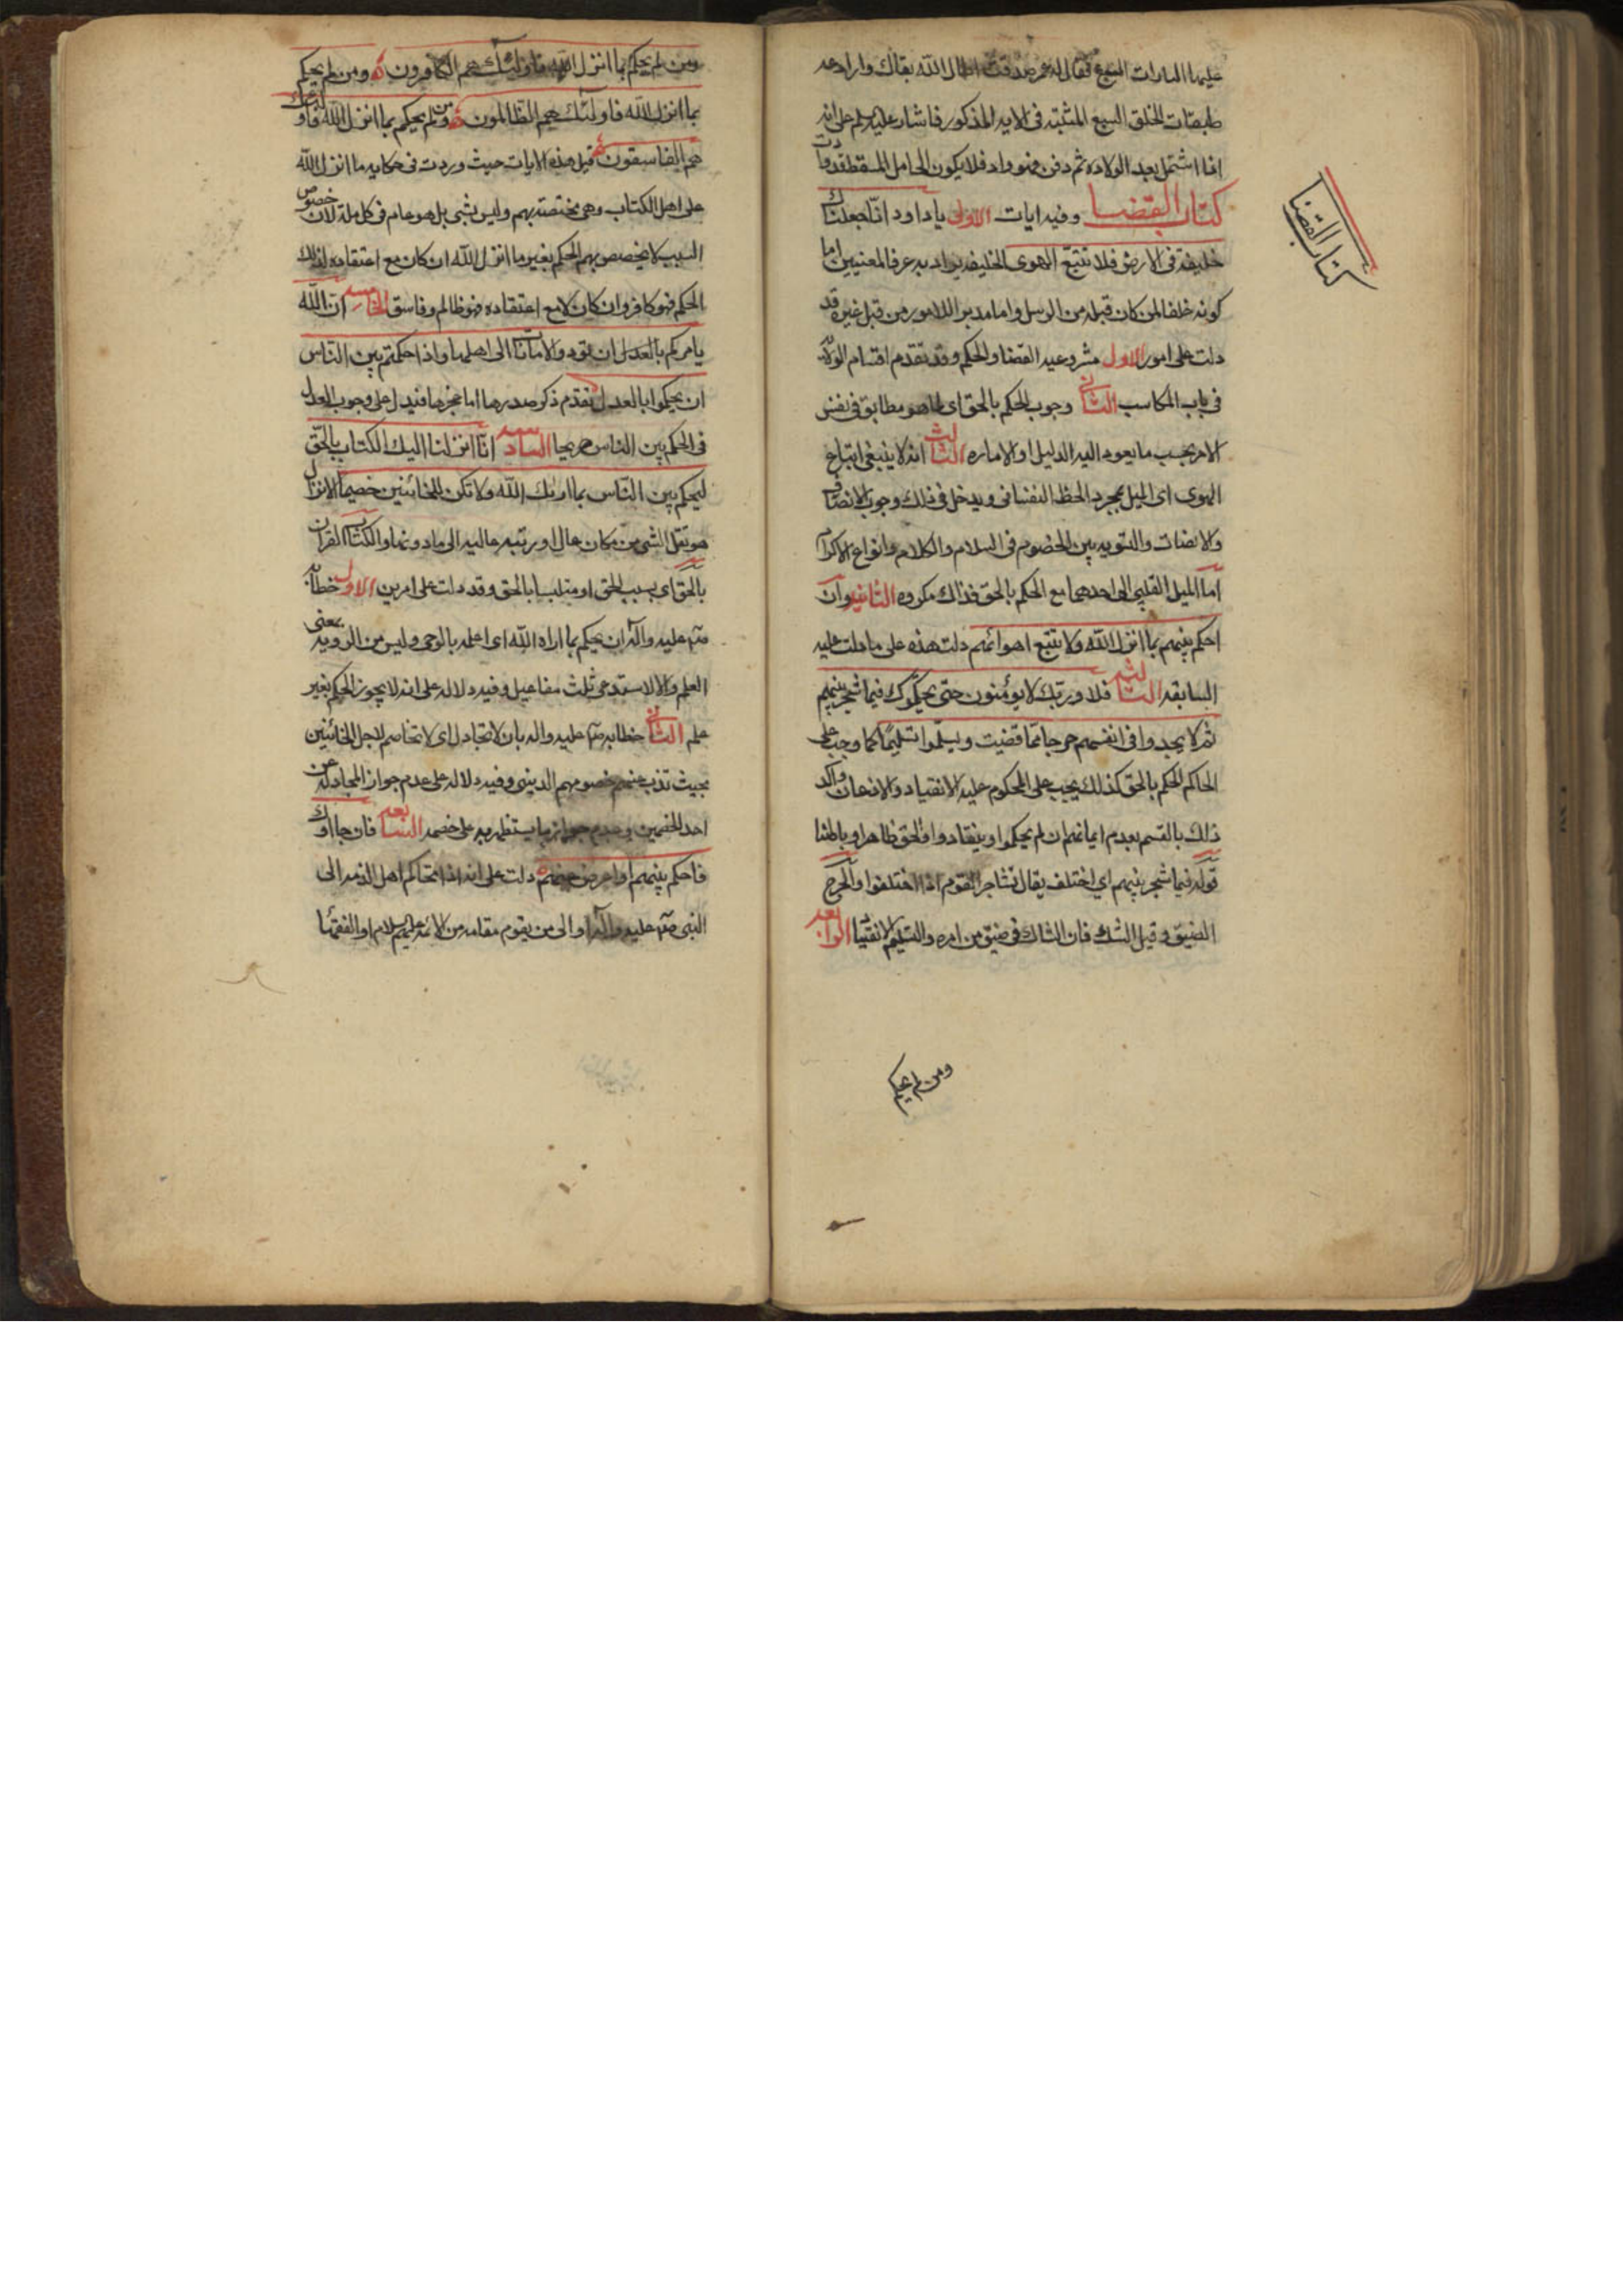 عليها التارات السبع فقال له عمر صدقت اطال الله بقاك واراد عه
طبقات الخلق السبع المثبته فى الايه المذكور فاشار عليه السلم على انه
اذا اشتمل بعد الولاده ثم دفن فهو واد فلا يكون الحامل المسقطة وادت
كتاب القضا وفيه ايات الاولى يا داود انا جعلناك
خليفة فى الارض فلا تتبع الهوى الخليفه يراد به عرفا لمعنيين اما
كونه خلفا لمن كان قبله من الرسل واما مدبر اللامور من قبل غيره وقد
دلت على امور الاول مشروعيه القضا والحكم وقد تقدم اقسام الولاة
فى باب المكاسب الثانى وجوب الحكم بالحق اى بما هو مطابق فى نفس
الامر بحسب ما يعود اليه الدليل او الاماره الثالث انه لا ينبغى اتباع
الهوى اى الميل بمجرد الحظ النفسانى ويدخل فى ذلك وجوب الانصاف
والانصات والتسويه بين الخصوم فى السلام والكلام وانواع الاكرام
اما الميل القلبى الى احدهما مع الحكم بالحق فذاك مكروه الثانيه وان
احكم بينهم بما انزل الله ولا تتبع اهوائهم دلت هذه على ما دلت عليه
السابقه الثالثه فلا وربك لا يومنون حتى يحكموك فيما شجر بينهم
ثم لا يجدوا فى انفسهم حرجا مما قضيت ويسلموا تسليما كما وجب على
الحاكم الحكم بالحق كذلك يجب على المحكوم عليه الانقياد والاذعان واكد
ذلك بالقسم بعدم ايمانهم ان لم يحكموا وينقادوا للحق ظاهرا وباطنا
قوله فيما شجر بينهم اي اختلف يقال تشاجر القوم اذا اختلفوا والحرج
الضيق وقيل الشك فان الشاك فى ضيق من امره والتسليم الانقياد الرابعه
كتاب القضا
ومن لم يحكم
ومن لم يحكم بما انزل الله فاولئك هم الكافرون ومن لم يحكم
بما انزل الله فاولئك هم الظالمون ومن لم يحكم بما انزل الله فاولئك
هم الفاسقون قيل هذه الايات حيث وردت فى حكايه ما انزل الله
على اهل الكتاب وهى مختصة بهم وليس بشى بل هو عام فى كل ملة لان خصوص
السبب لا يخصص بهم الحكم بغير ما انزل الله ان كان مع اعتقاده لذلك
الحكم فهو كافر وان كان لا مع اعتقاده فهو ظالم وفاسق الخامسه ان الله
يامركم بالعدل ان تؤدوا الامانات الى اهلها واذا حكمتم بين الناس
ان يحكموا بالعدل تقدم ذكر صدرها اما عجزها فيدل على وجوب العدل
فى الحكم بين الناس صريحا السادسه انا انزلنا اليك الكتاب بالحق
ليحكم بين الناس بما اريك الله ولا تكن للخائنين خصيما الانزال
هو نقل الشى من مكان عال او رتبه عاليه الى ما دونها والكتاب القران
بالحق اى بسبب الحق او متلبسا بالحق وقد دلت على امرين الاول خطابه
صلى الله عليه واله ان يحكم بما اراه الله اى اعلمه بالوحى وليس من الرويه بمعنى
العلم والا لاستدعى ثلث مفاعيل وفيه دلاله على انه لا يجوز الحكم بغير
علم الثانى خطابه صلى الله عليه واله بان لا تجادل اى لا تخاصم لاجل الخائنين
بحيث تذب عنهم خصومهم الدينى وفيه دلاله على عدم جواز المجادله عن
احد الخصمين وعدم جواز ما يستظهر به على خصمه السابعه فان جاؤك
فاحكم بينهم او اعرض عنهم دلت على انه اذا تحاكم اهل الذمه الى
النبى صلى الله عليه واله او الى من يقوم مقامه من الائمه عليهم السلام او الفقها